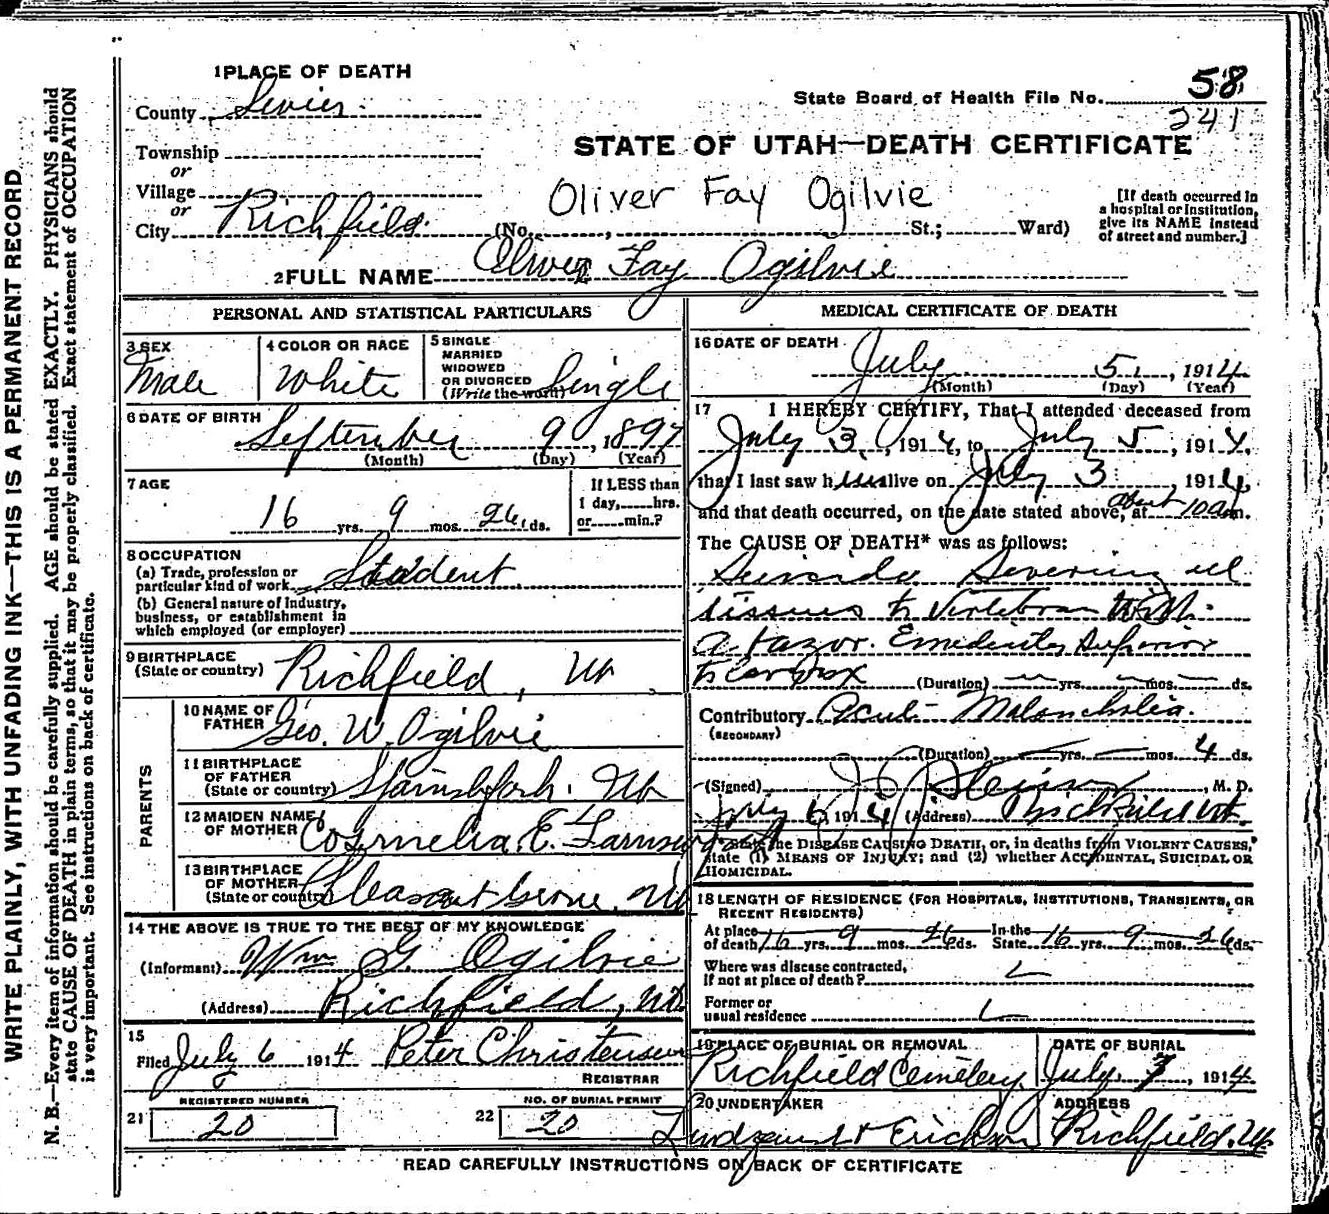 WRITE PLAINLY, WITH UNFADING INK—THIS IS A PERMANENT RECORD
N. B.—Every item of information should be carefully supplied. AGE should be stated EXACTLY. PHYSICIANS should
state CAUSE OF DEATH in plain terms, so that it may be properly classified. Exact statement of OCCUPATION
is very important. See instructions on back of certificate.
1 PLACE OF DEATH
County Sevier
Township
or
Village
or
City Richfield.
State Board of Health File No. 58
241
STATE OF UTAH—DEATH CERTIFICATE
Oliver Fay Ogilvie
(No. , St.; Ward)
[If death occurred in
a hospital or institution,
give its NAME instead
of street and number.]
2 FULL NAME Oliver Fay Ogilvie
PERSONAL AND STATISTICAL PARTICULARS
3 SEX
Male
4 COLOR OR RACE
White
5 SINGLE
MARRIED
WIDOWED
OR DIVORCED
(Write the word) Single
6 DATE OF BIRTH
September 9, 1897
(Month) (Day) (Year)
7 AGE
16 yrs. 9 mos. 26 ds.
If LESS than
1 day, hrs.
or min.?
8 OCCUPATION
(a) Trade, profession or
particular kind of work Student
(b) General nature of Industry,
business, or establishment in
which employed (or employer)
9 BIRTHPLACE
(State or country) Richfield, Ut
PARENTS
10 NAME OF
FATHER Geo. W. Ogilvie
11 BIRTHPLACE
OF FATHER
(State or country) Spanish fork. Ut
12 MAIDEN NAME
OF MOTHER Cornelia E.
13 BIRTHPLACE
OF MOTHER
(State or country) Pleasant Grove, Ut
14 THE ABOVE IS TRUE TO THE BEST OF MY KNOWLEDGE
(Informant) Wm G. Ogilvie
(Address) Richfield, Ut
15
Filed July 6 1914 Peter Christensen
REGISTRAR
21 REGISTERED NUMBER
20
22 NO. OF BURIAL PERMIT
20
MEDICAL CERTIFICATE OF DEATH
16 DATE OF DEATH
July 5, 1914
(Month) (Day) (Year)
17 I HEREBY CERTIFY, That I attended deceased from
July 3, 1914, to July 5, 1914,
that I last saw him alive on July 3 1914,
and that death occurred, on the date stated above, at about 10 a m.
The CAUSE OF DEATH* was as follows:
Suicide Severing all
tissues to Vertebra With
a razor. Superior
to
(Duration) yrs. mos. ds.
Contributory Acute Melancholia.
(SECONDARY)
(Duration) yrs. mos. 4 ds.
(Signed) J. , M. D.
July 6, 1914 (Address) Richfield Ut.
*State the DISEASE CAUSING DEATH, or, in deaths from VIOLENT CAUSES,
state (1) MEANS OF INJURY; and (2) whether ACCIDENTAL, SUICIDAL OR
HOMICIDAL.
18 LENGTH OF RESIDENCE (FOR HOSPITALS, INSTITUTIONS, TRANSIENTS, OR
RECENT RESIDENTS)
At place
of death 16 yrs. 9 mos. 26 ds. In the
State 16 yrs. 9 mos. 26 ds.
Where was disease contracted,
If not at place of death?
Former or
usual residence
19 PLACE OF BURIAL OR REMOVAL
Richfield Cemetery
DATE OF BURIAL
July 7, 1914
20 UNDERTAKER
Erickson
ADDRESS
Richfield. Ut
READ CAREFULLY INSTRUCTIONS ON BACK OF CERTIFICATE